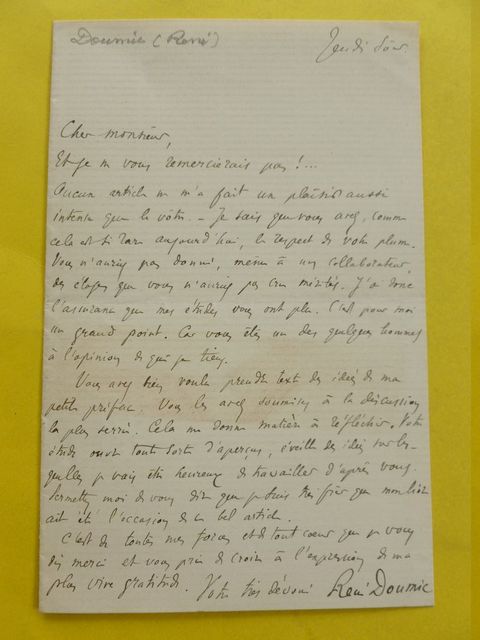 Doumic (René)
Jeudi soir
Cher monsieur,
Et je ne vous remercierais pas !...
Aucun article ne m'a fait un plaisir aussi
intense que le vôtre. – Je sais que vous avez, comme
cela est si rare aujourd'hui, le respect de votre plume.
Vous n'auriez pas donné, même à un collaborateur,
des éloges que vous n'auriez pas cru mérités. J'ai donc
l'assurance que mes études vous ont plu. C'est pour moi
un grand point. Car vous êtes un des quelques hommes
à l'opinion de qui je tiens.
Vous avez bien voulu prendre texte des idées de ma
petite préface. Vous les avez soumises à la discussion
la plus serrée. Cela me donne matière à réfléchir. Votre
étude ouvre toute sorte d'aperçus, éveille des idées sur les-
quelles je vais être heureux de travailler d'après vous.
Permettez moi de vous dire que je suis très fier que mon livre
ait été l'occasion de ce bel article.
C'est de toutes mes forces et de tout cœur que je vous
dis merci et vous prie de croire à l'expression de ma
plus vive gratitude. Votre très dévoué René Doumic